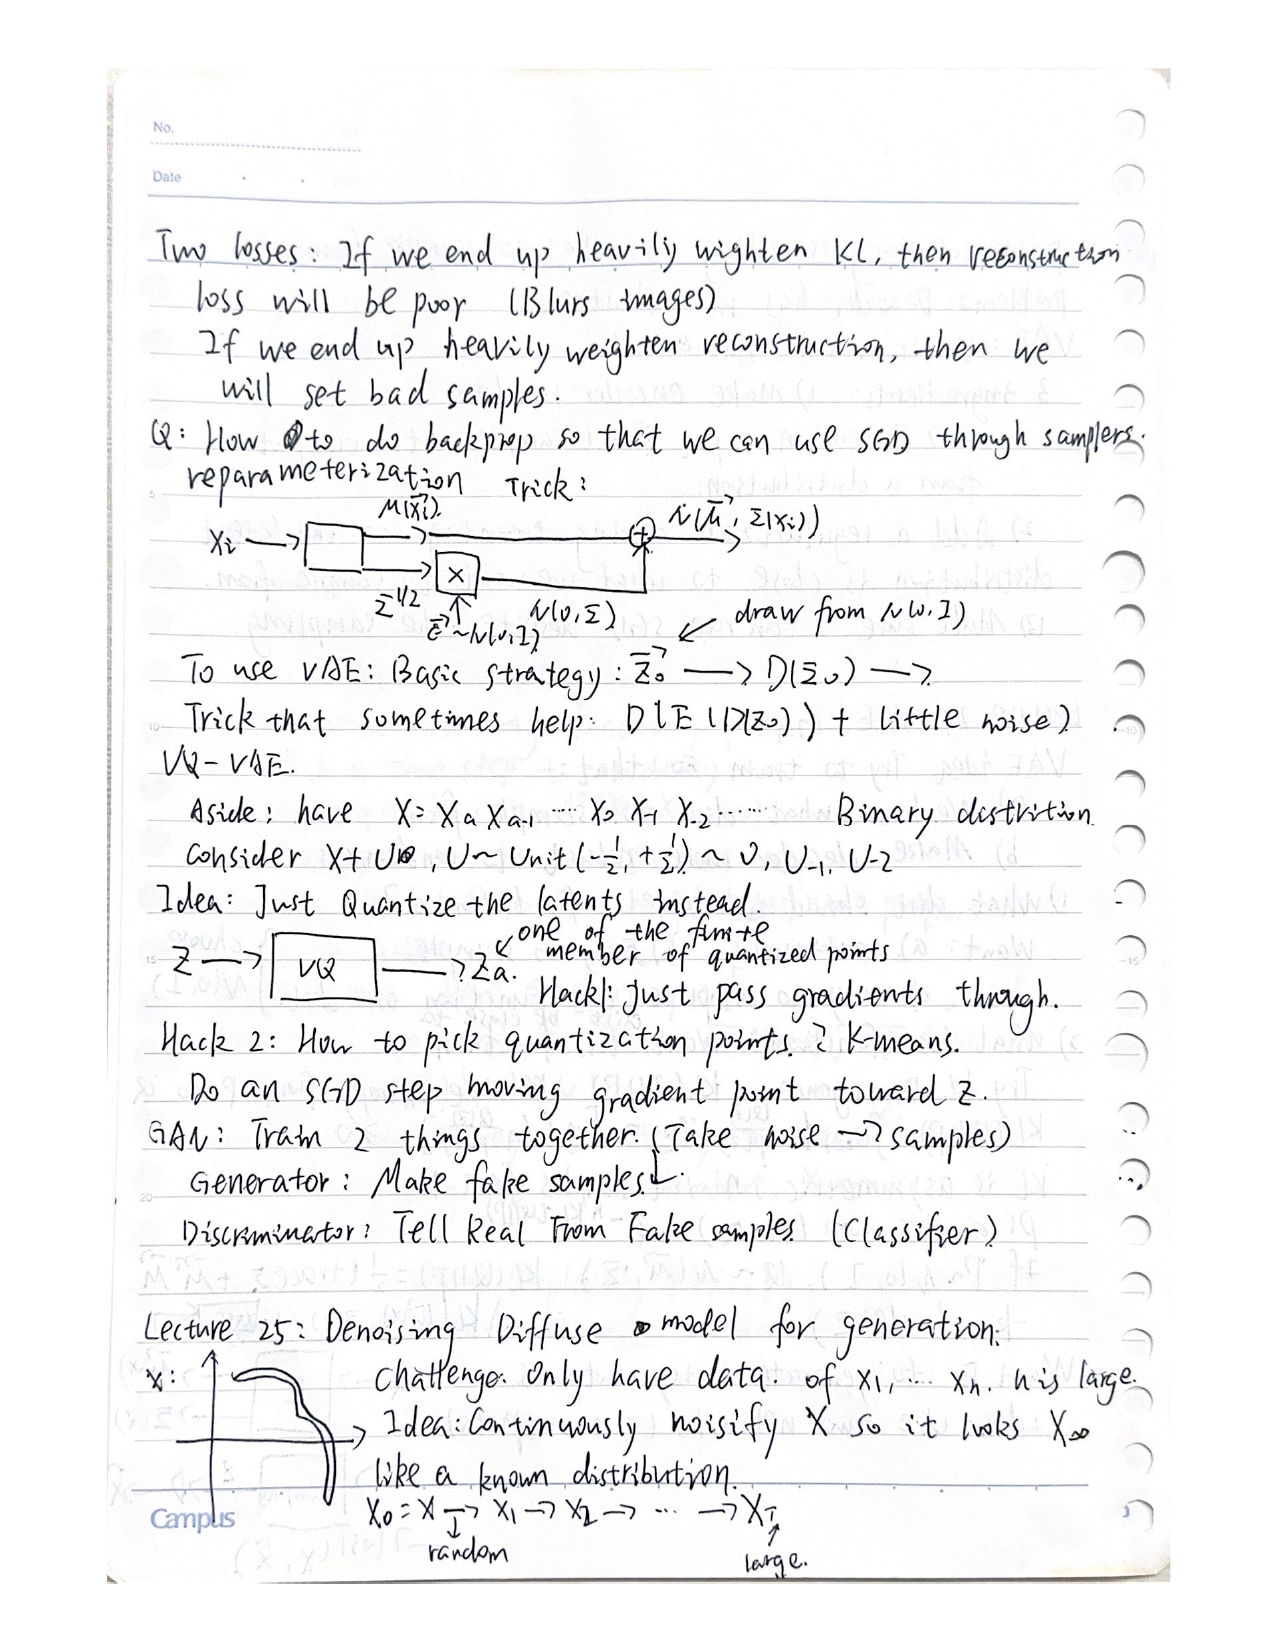 No.
Date
Two losses: If we end up heavilily wighten KL, then reconstruction
loss will be poor (Blurs images)
If we end up heavily weighten reconstruction, then we
will set bad samples.
Q: How to do backprop so that we can use SGD through samplers.
reparameterization Trick:
Xi → μ(x⃗i) → + → N(μ⃗, Σ(xi))
Σ^1/2 → X
ε⃗ ~ N(0,I) N(0,Σ)
draw from N(0,I)
To use VAE: Basic strategy: z⃗0 → D(z0) →
Trick that sometimes help: D(E(D(z0)) + little noise)
VQ-VAE.
Aside: have X= Xa Xa-1 ···· X0 X-1 X-2 ······ Binary distrition.
consider X+U, U~Unit(-1/2, +1/2) ~ 0, U-1, U-2
Idea: Just Quantize the latents instead.
one of the finite
Z → VQ → Za. member of quantized points
Hack1: Just pass gradients through.
Hack 2: How to pick quantization points? K-means.
Do an SGD step moving gradient point toward z.
GAN: Train 2 things together. (Take noise → samples)
Generator: Make fake samples.
Discriminator: Tell Real From Fake samples (Classifier)
Lecture 25: Denoising Diffuse model for generation:
X: Challenge. Only have data. of X1, ··· Xn. n is large.
Idea: Continuously noisify X so it looks X∞
like a known distribution.
X0 = X → X1 → X2 → ··· → XT
random large.
Campus